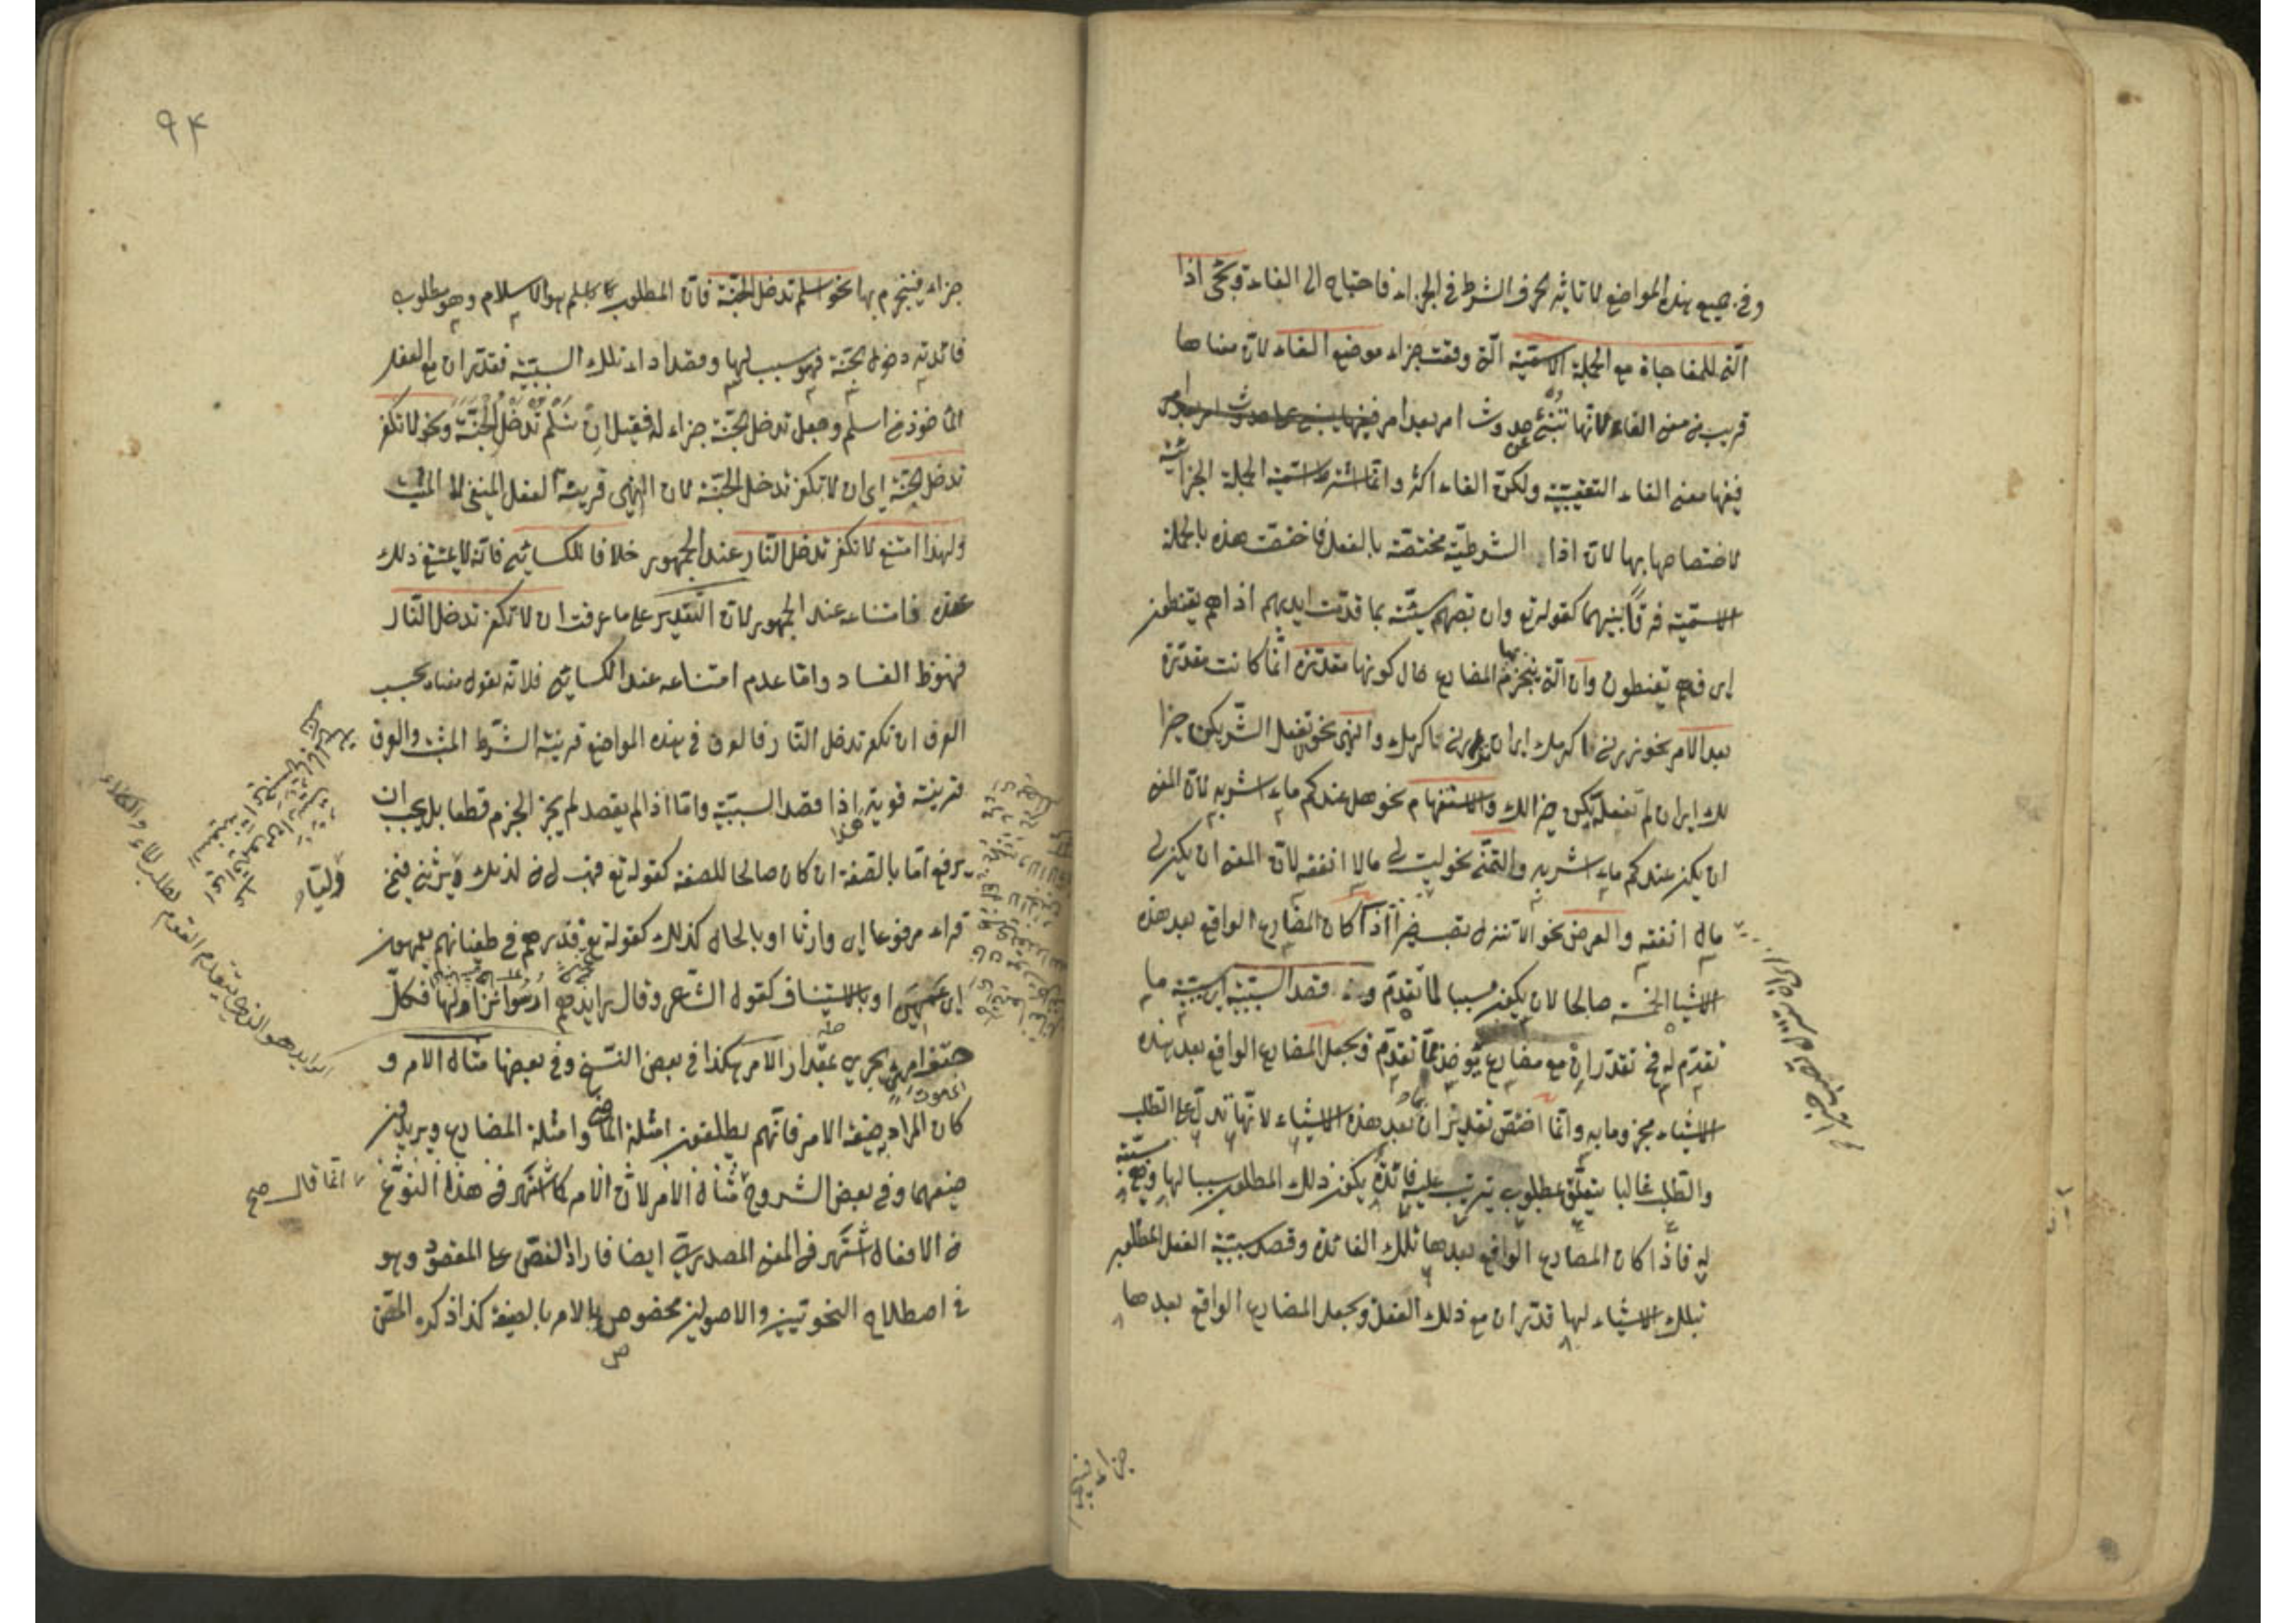 وفي جميع هذه المواضع لا تأثير لحرف الشرط في الجزاء فاحتاج الى الفاء ويجئ اذا
التي للمفاجاة مع الجملة الاسميّة التي وقعت جزاء موضع الفاء لان معناها
قريب من معنى الفاء لانها تنبئ عن حدوث امر بعد امر
ففيها معنى الفاء التعقيبيّة ولكن الفاء اكثر وانما اشترط اسميّة الجملة الجزائية
لاختصاصها بها لان اذا الشرطيّة مختصّة بالفعل فاختصت هذه بالجملة
الاسميّة فرقا بينهما كقوله تع وان تصبهم سيّئة بما قدمت ايديهم اذا هم يقنطون
اى فهم يقنطون وان التي ينجزم بها المضارع حال كونها مقدّرة انما كانت مقدّرة
بعد الامر نحو زرني اكرمك اى ان تزرني اكرمك والنهي نحو لا تفعل الشّر يكن خيرا
لك اى ان لم تفعله يكن خيرا لك والاستفهام نحو هل عندكم ماء اشربه لان المعنى
ان يكن عندكم ماء اشربه والتمنّي نحو ليت لي مالا انفقه لان المعنى ان يكن لي
مال انفقه والعرض نحو الا تنزل تصب خيرا اذا كان المضارع الواقع بعد هذه
الاشياء الخمسة صالحا لان يكون مسببا لما تقدّم و قصد السّببيّة اى سببيّة ما
تقدّم له فح تقدّر ان مع مضارع يؤخذ ممّا تقدّم ويجعل المضارع الواقع بعد هذه
الاشياء مجزوما به وانما اختصّ تقدير ان بما بعد هذه الاشياء لانّها تدلّ على الطلب
والطلب غالبا يتعلّق بمطلوب يترتب عليه فائدة يكون ذلك المطلوب سببا لها وهي مسببة
له فاذا كان المضارع الواقع بعدها تلك الفائدة وقصد سببيّة الفعل المطلوب
بتلك الاشياء لها قدّر ان مع ذلك الفعل ويجعل المضارع الواقع بعدها
جزاء فينجزم
٩٤
جزاء فينجزم بها نحو اسلم تدخل الجنّة فان المطلوب باسلم هو الاسلام وهو مطلوب
فائدته دخول الجنّة فهو سبب لها وقصد اداء تلك السببيّة فقدّر ان مع الفعل
المأخوذ من اسلم وجعل تدخل الجنّة جزاء له فقيل ان تسلم تدخل الجنّة ونحو لا تكفر
تدخل الجنّة اى ان لا تكفر تدخل الجنّة لان النهي قرينة الفعل المنفي لا المثبت
ولهذا امتنع لا تكفر تدخل النّار عند الجمهور خلافا للكسائي فانّه لا يمتنع ذلك
عنده فامتناعه عند الجمهور لان التّقدير على ما عرفت ان لا تكفر تدخل النّار
فهو ظ الفساد وامّا عدم امتناعه عند الكسائي فلانّه يقول معناه بحسب
العرف ان تكفر تدخل النّار فالعرف في هذه المواضع قرينة الشّرط المثبت والعرف
قرينة قوية هذا اذا قصد السببيّة وامّا اذا لم يقصد لم يجز الجزم قطعا بل يجب ان
يرفع امّا بالصّفة ان كان صالحا للصفة كقوله تع فهب لي من لدنك وليّا يرثني فيمن
قراء مرفوعا اى وارثا او بالحال كذلك كقوله تع فذرهم في طغيانهم يعمهون
اى عمهين او بالاستيناف كقول الشّاعر وقال رايدهم ارسوا نزاولها فكلّ
حتف امرئ يجري بمقدار الامر هكذا في بعض النّسخ وفي بعضها مثال الامر و
كان المراد به صيغة الامر فانّهم يطلقون امثلة الماضي وامثلة المضارع ويريدون
صيغهما وفي بعض الشروح انّما قال مثال الامر لان الامر كما اشتهر في هذا النوع
من الافعال اشتهر في المعنى المصدري ايضا فاراد النّصّ على المقصود وهو
في اصطلاح النحوتيين والاصوليين مخصوص بالامر بالصيغة كذا ذكره المصّ
وليّا
انّما قال صح
رايد هو الذي يتقدم القوم لطلب الماء والكلاء